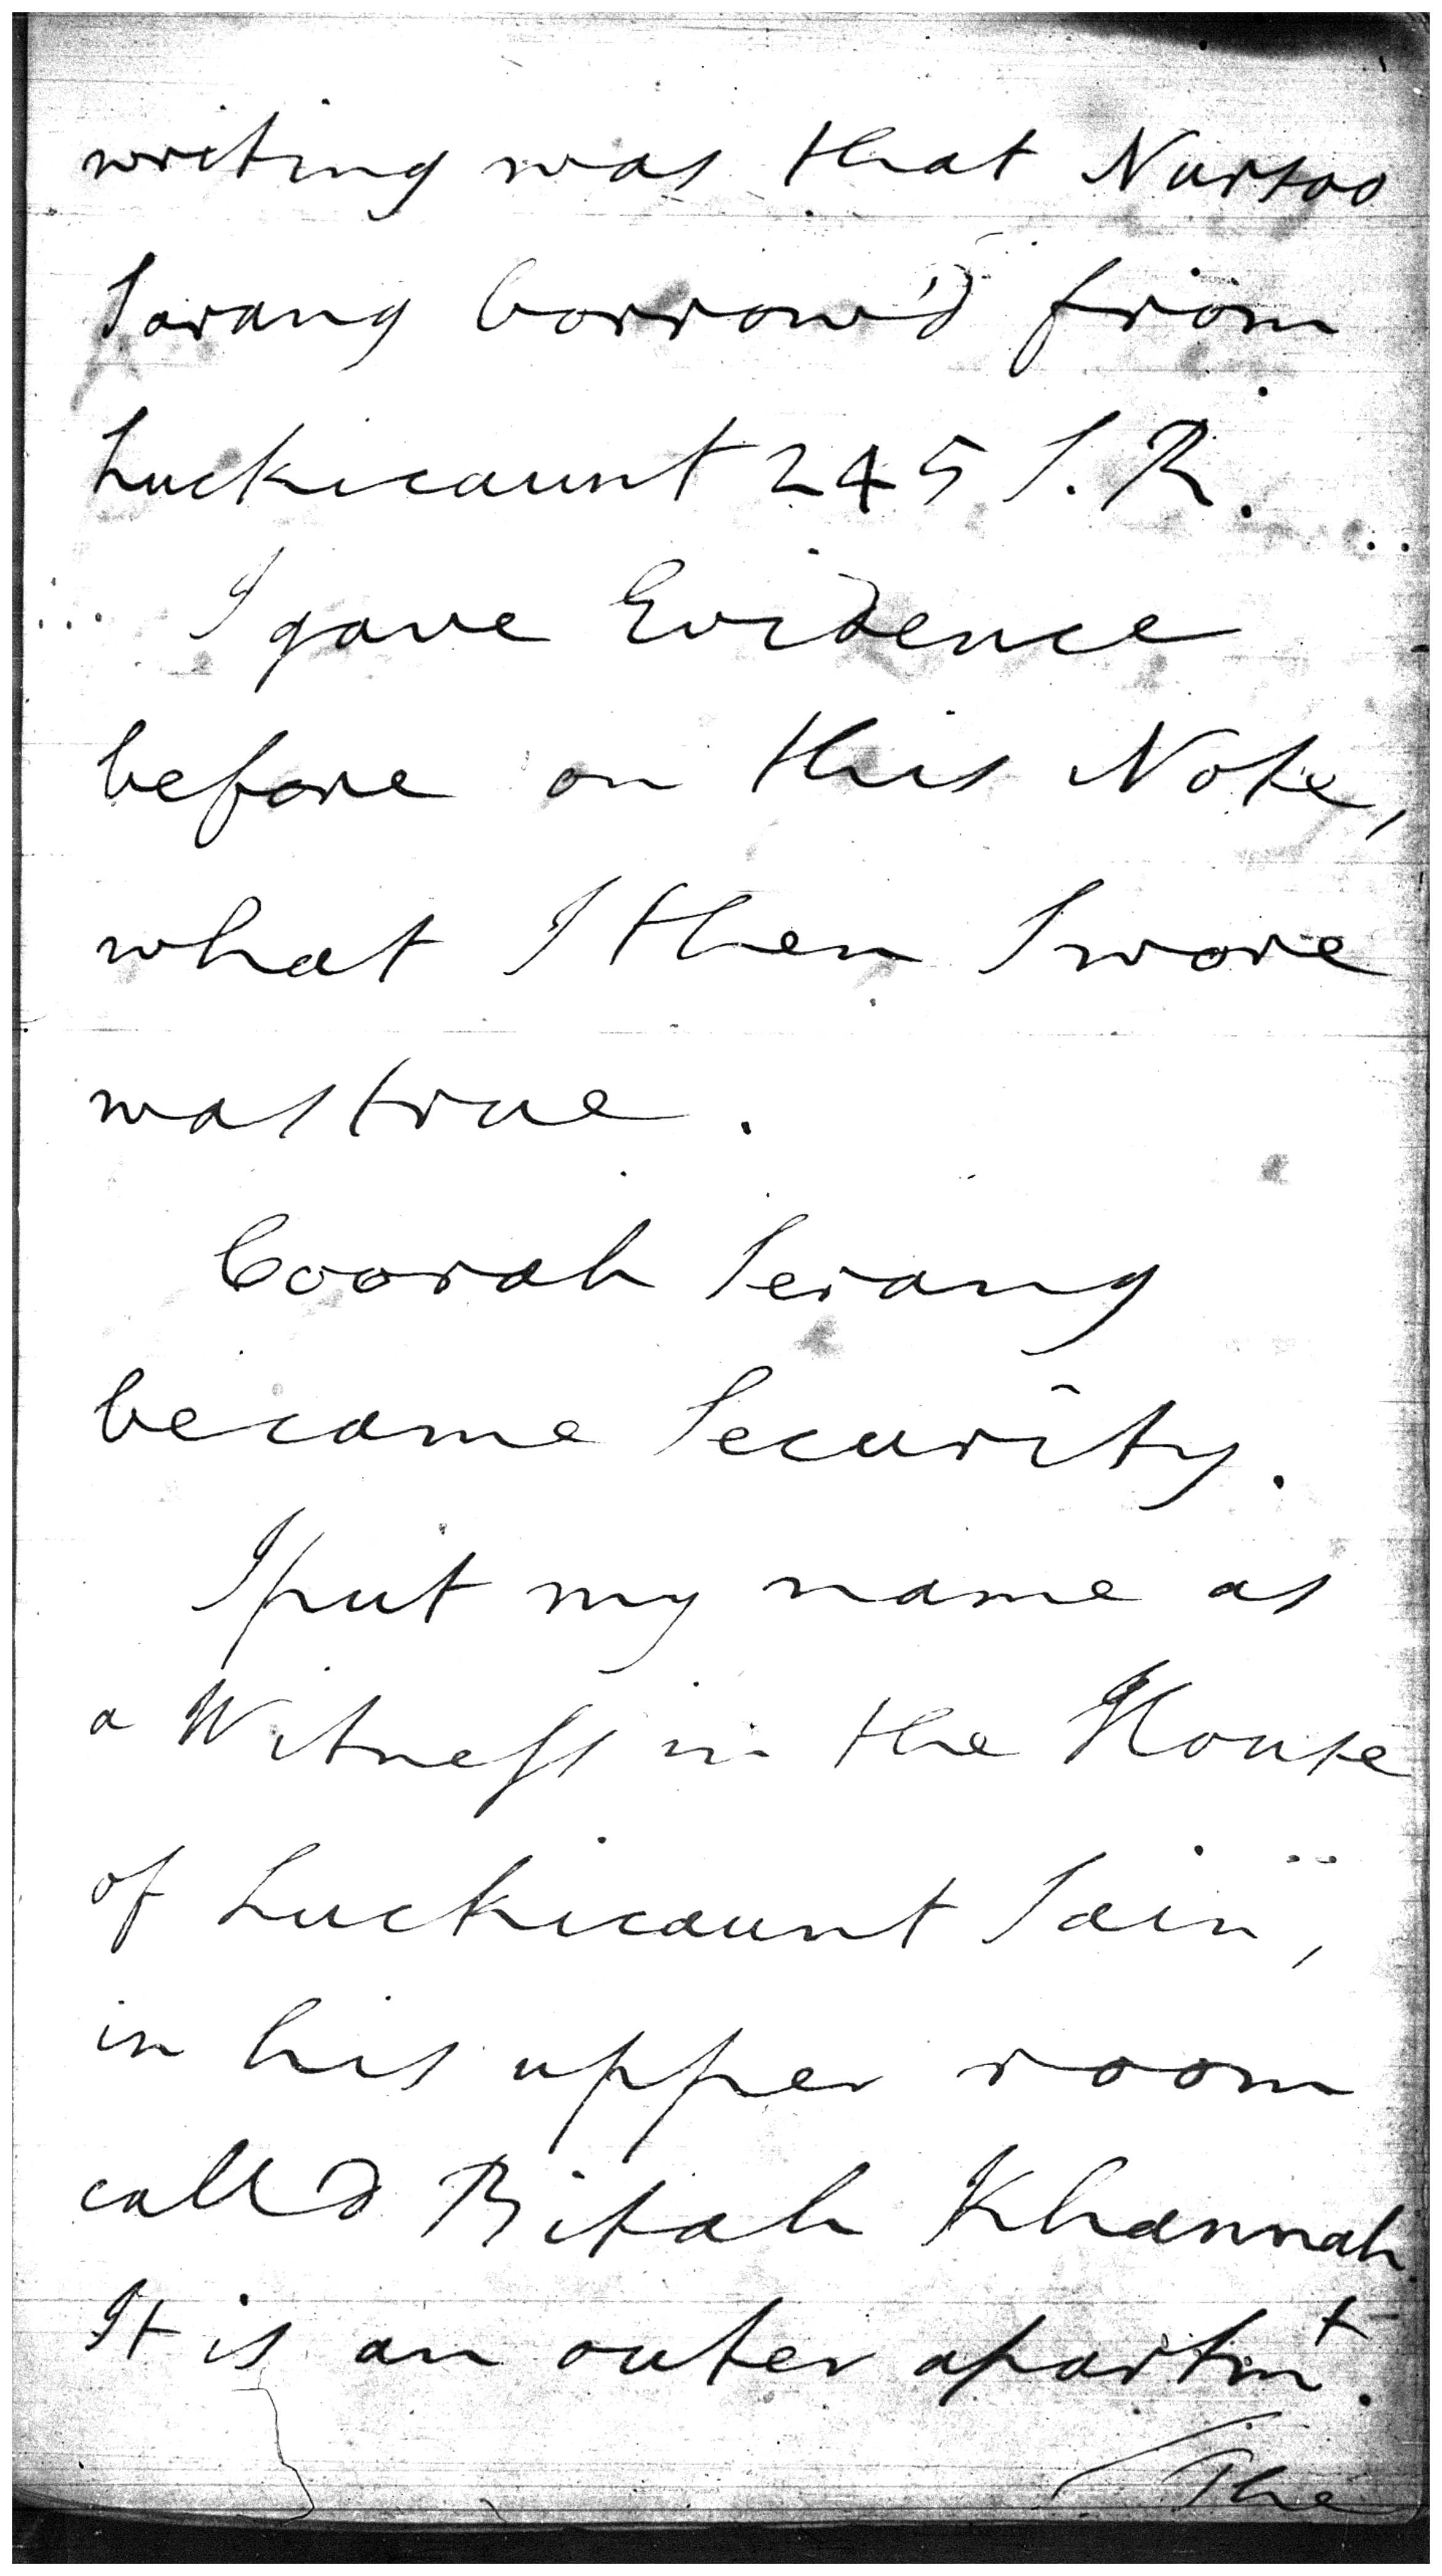 writing was that Nursoo
Sarang borrow'd from
Luckicaunt 245 S. R.
I gave Evidence
before on this Note,
what I then Swore
was true.
Coorah Serang
became Security.
I put my name as
a Witness in the House
of Luckicaunt Sain,
in his upper room
call'd Bitah Khannah.
It is an outer apartmt.
The